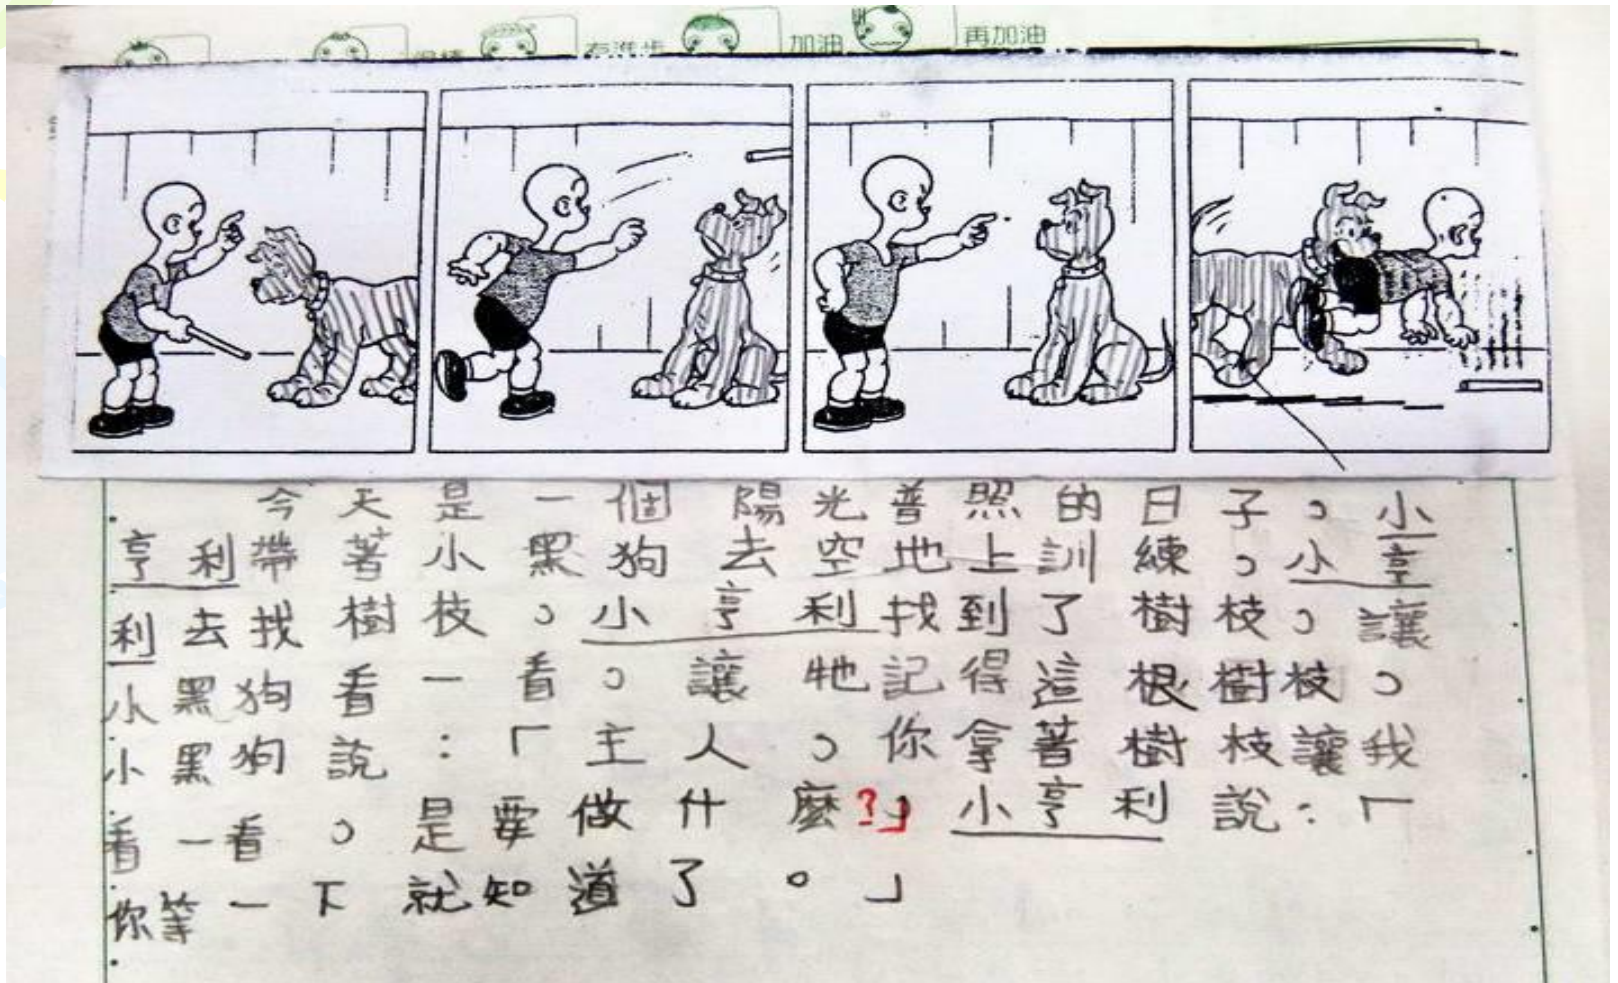 有進步
加油
再加油
今天是一個陽光普照的日子,小
亨利帶著小黑狗去空地上訓練,小亨
利去找樹枝,小亨利找到了樹枝,讓
小黑狗看一看,讓牠記得這根樹枝,
小黑狗說:「主人,你拿著樹枝讓我
看一看,是要做什麼?」小亨利說:「
你等一下就知道了。」